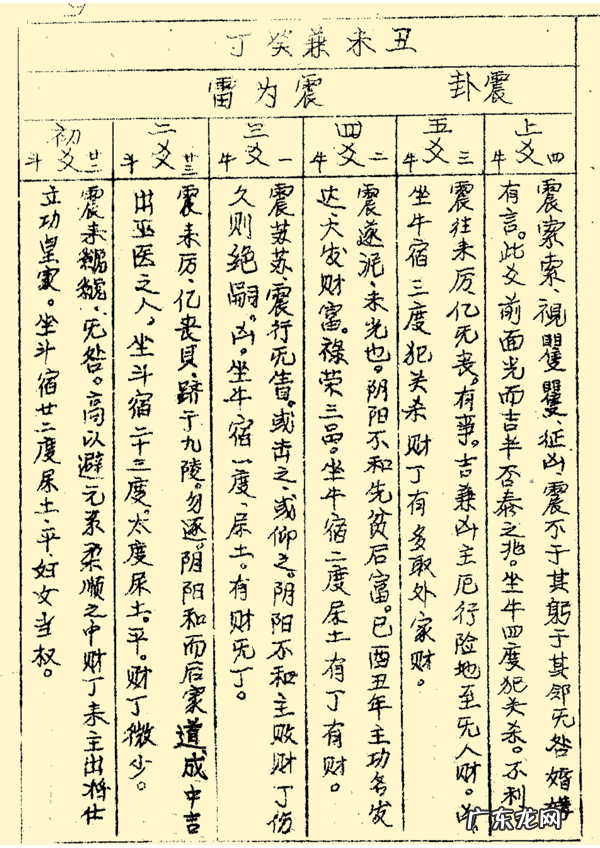 丑未兼癸丁
震卦 震为雷
上爻 四牛
震索索、視矍矍、征凶震不于其躬于其邻无咎婚媾
有言。此爻前面光而吉半否泰之兆。坐牛四度犯关杀。不利
五爻 三牛
震往来厉、亿无丧。有事。吉兼凶主厄行险地至无人财。凶
坐牛宿三度犯关杀财丁有多取外家财。
四爻 二牛
震遂泥、未光也。阴阳不和先贫后富。巳酉丑年主功名发
达大发财富。禄荣三品。坐牛宿二度尿土有丁有财。
三爻 一牛
震苏苏、震行无眚。或击之、或仰之。阴阳不和主败财丁伤
久则绝嗣。凶。坐牛宿一度、尿土。有财无丁。
二爻 廿三斗
震来厉、亿丧貝、跻于九陵。勿逐。阴阳和而后家道成中吉
出巫医之人。坐斗宿二十三度。太度尿土。平。财丁微少。
初爻 廿二斗
震来虩虩、无咎。高以避元柔顺之中财丁未主出将仕
立功皇家。坐斗宿廿二度尿土、平、妇女当权。
广东龙网